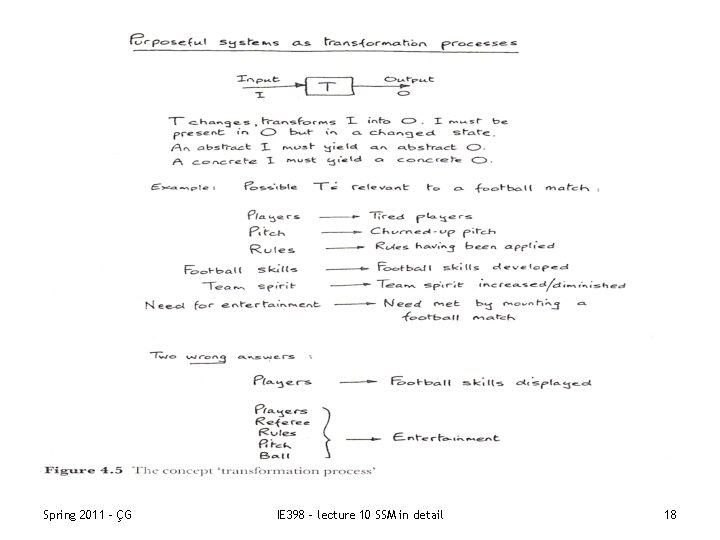 Purposeful systems as transformation processes
Input T Output
I O
T changes, transforms I into O. I must be
present in O but in a changed state.
An abstract I must yield an abstract O.
A concrete I must yield a concrete O.
Example: Possible T's relevant to a football match:
Players → Tired players
Pitch → Churned-up pitch
Rules → Rules having been applied
Football skills → Football skills developed
Team spirit → Team spirit increased/diminished
Need for entertainment → Need met by mounting a
football match
Two wrong answers:
Players → Football skills displayed
Players
Referee
Rules → Entertainment
Pitch
Ball
Figure 4.5 The concept 'transformation process'
Spring 2011 - ÇG IE398 - lecture 10 SSM in detail 18